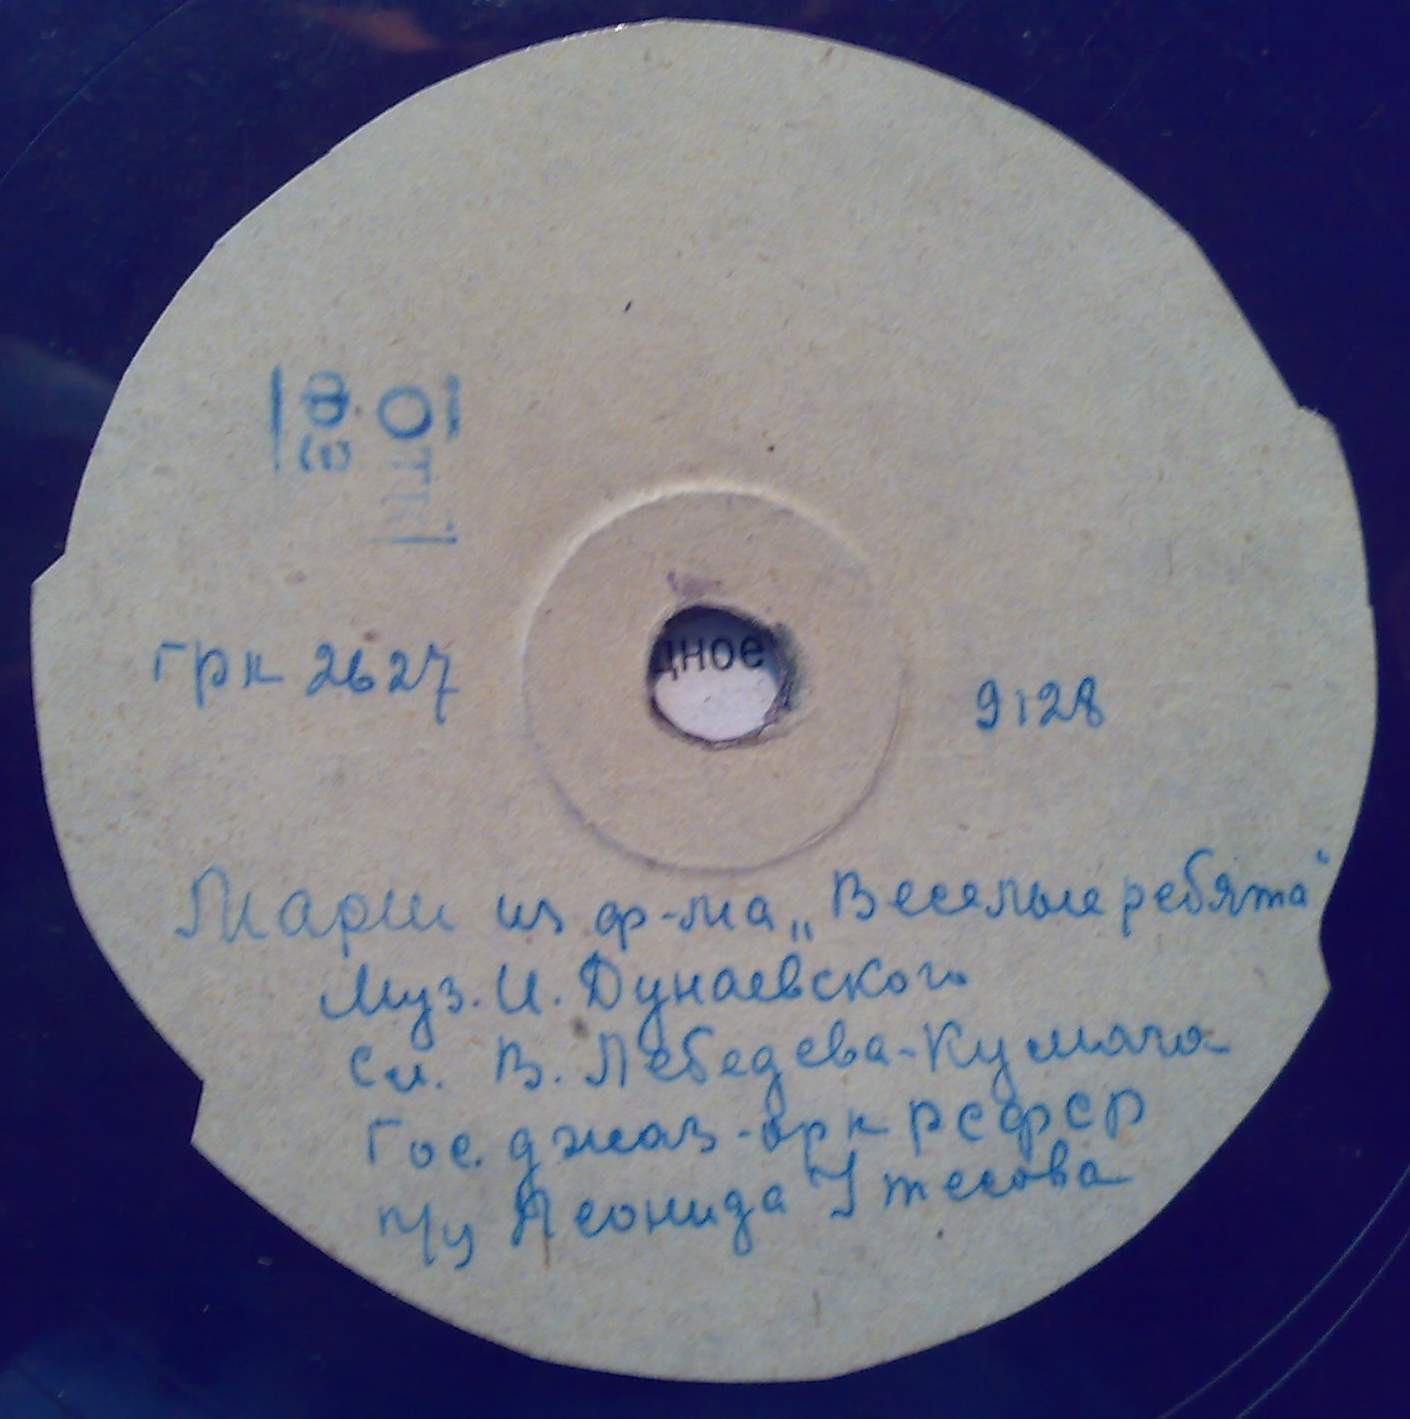 грк 2627
дное
9128
Марш из ф-ма „Веселые ребята"
Муз. И. Дунаевского
Сл. В. Лебедева-Кумача
Гос. джаз-орк РСФСР
п/у Леонида Утесова